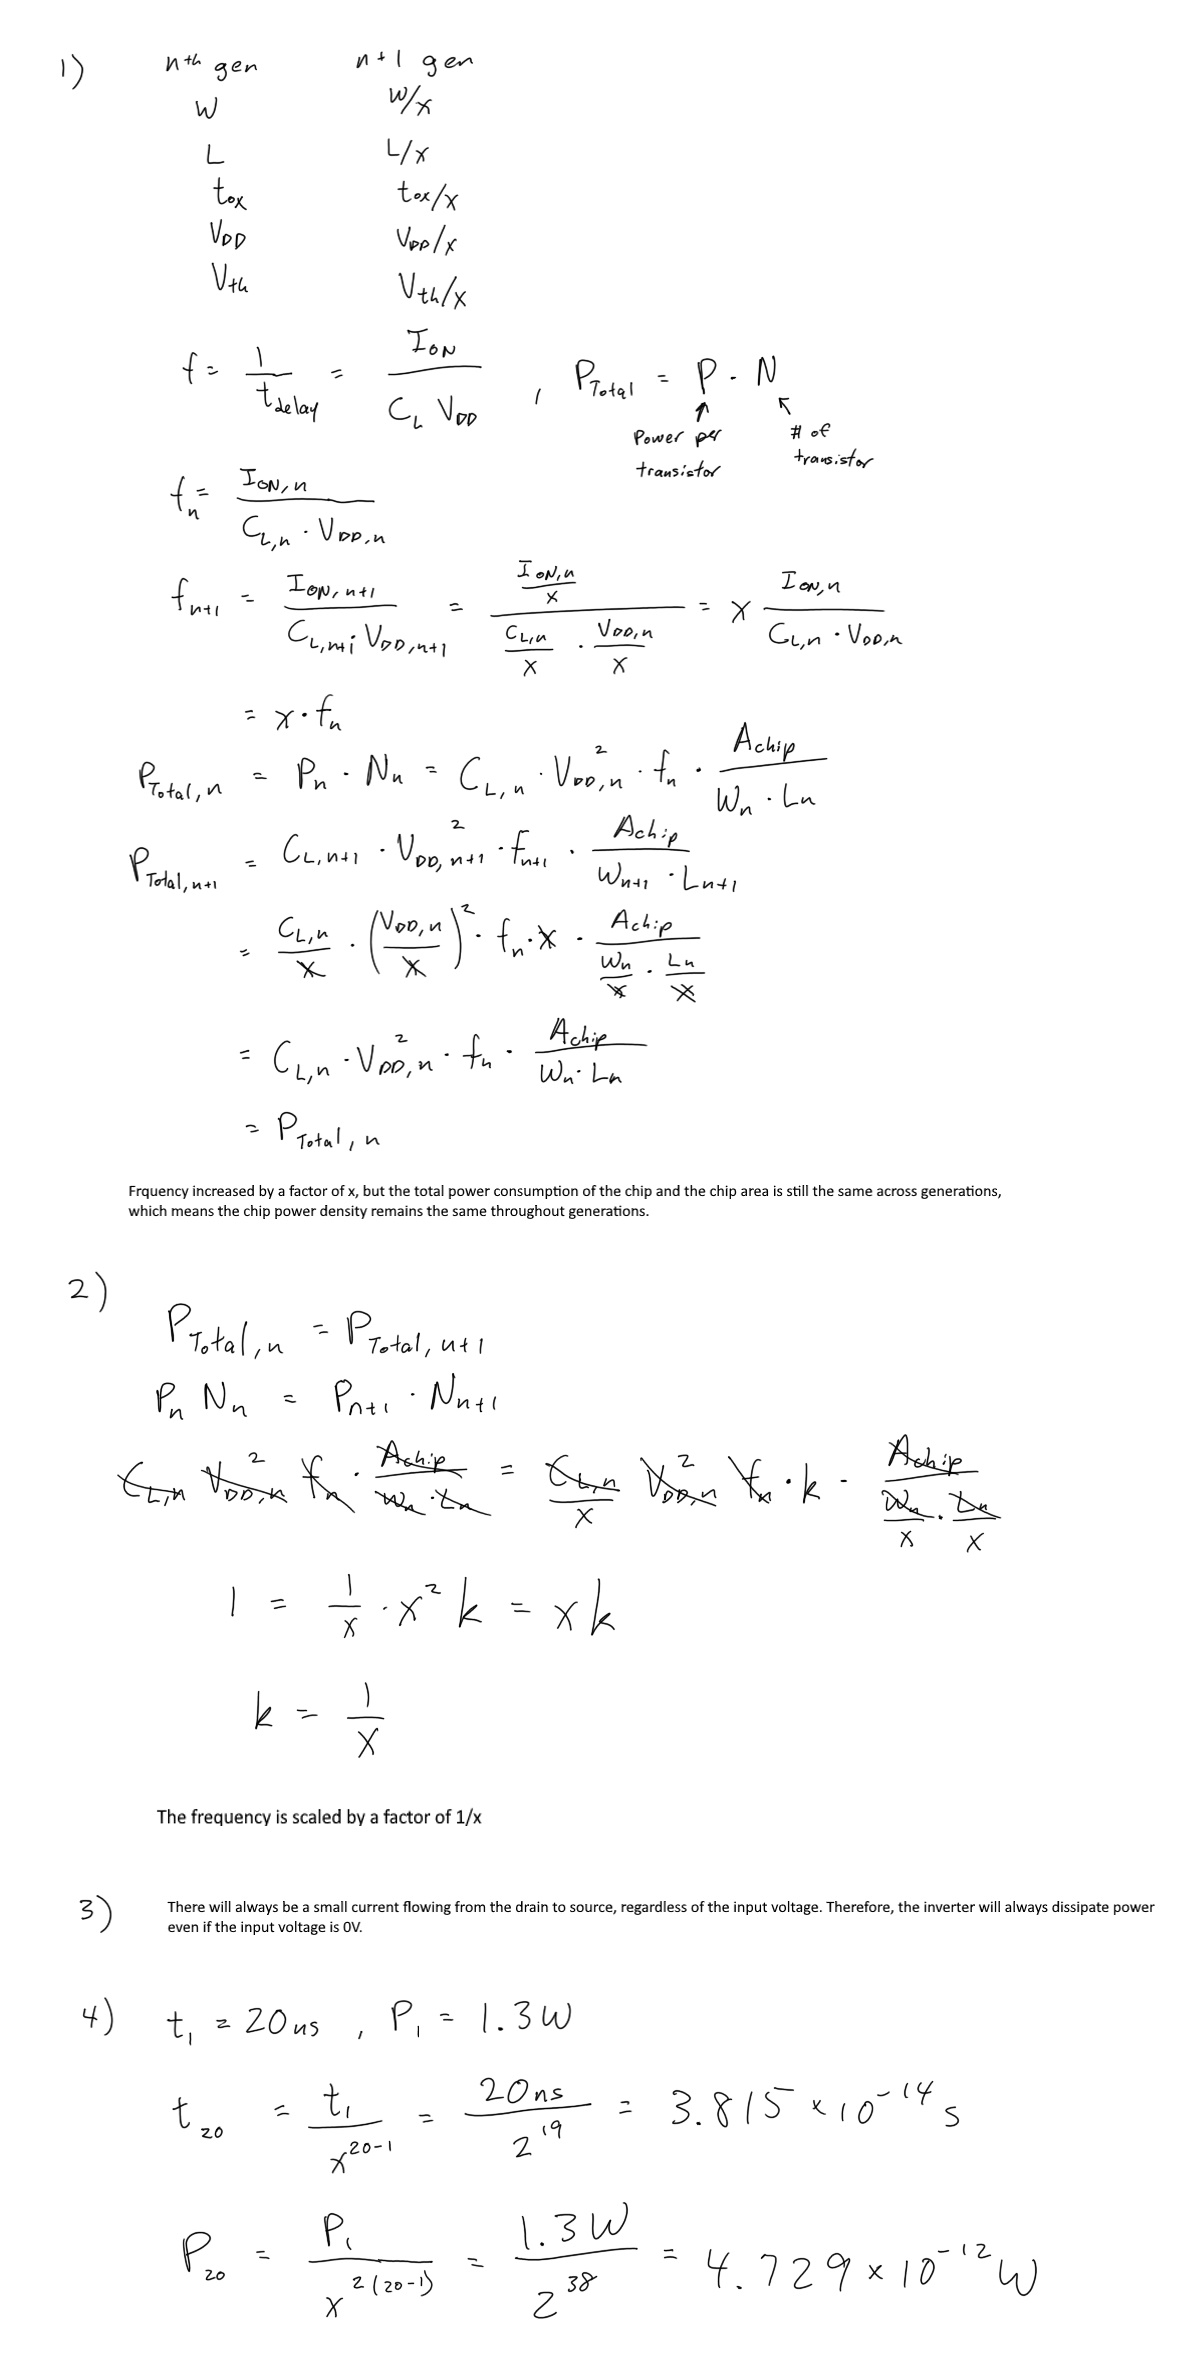 1) nth gen n+1 gen
W W/x
L L/x
tox tox/x
VDD VDD/x
Vth Vth/x
f = 1/tdelay = ION/(CL VDD) , PTotal = P · N
↑ ↖
Power per transistor # of transistor
fn = ION,n/(CL,n · VDD,n)
fn+1 = ION,n+1/(CL,n+1 VDD,n+1) = (ION,n/x)/(CL,n/x · VDD,n/x) = x ION,n/(CL,n · VDD,n)
= x · fn
PTotal,n = Pn · Nn = CL,n · VDD,n² · fn · Achip/(Wn · Ln)
PTotal,n+1 = CL,n+1 · VDD,n+1² · fn+1 · Achip/(Wn+1 · Ln+1)
= CL,n/x · (VDD,n/x)² · fn · x · Achip/(Wn/x · Ln/x)
= CL,n · VDD,n² · fn · Achip/(Wn · Ln)
= PTotal,n
Frquency increased by a factor of x, but the total power consumption of the chip and the chip area is still the same across generations,
which means the chip power density remains the same throughout generations.
2)
PTotal,n = PTotal,n+1
Pn Nn = Pn+1 · Nn+1
CL,n VDD,n² fn · Achip/(Wn · Ln) = CL,n/x VDD,n² fn · k · Achip/(Wn/x · Ln/x)
1 = 1/x · x² k = xk
k = 1/x
The frequency is scaled by a factor of 1/x
3) There will always be a small current flowing from the drain to source, regardless of the input voltage. Therefore, the inverter will always dissipate power
even if the input voltage is 0V.
4) t1 = 20ns , P1 = 1.3W
t20 = t1/x^(20-1) = 20ns/2^19 = 3.815 × 10^-14 s
P20 = P1/x^(2(20-1)) = 1.3W/2^38 = 4.729 × 10^-12 W